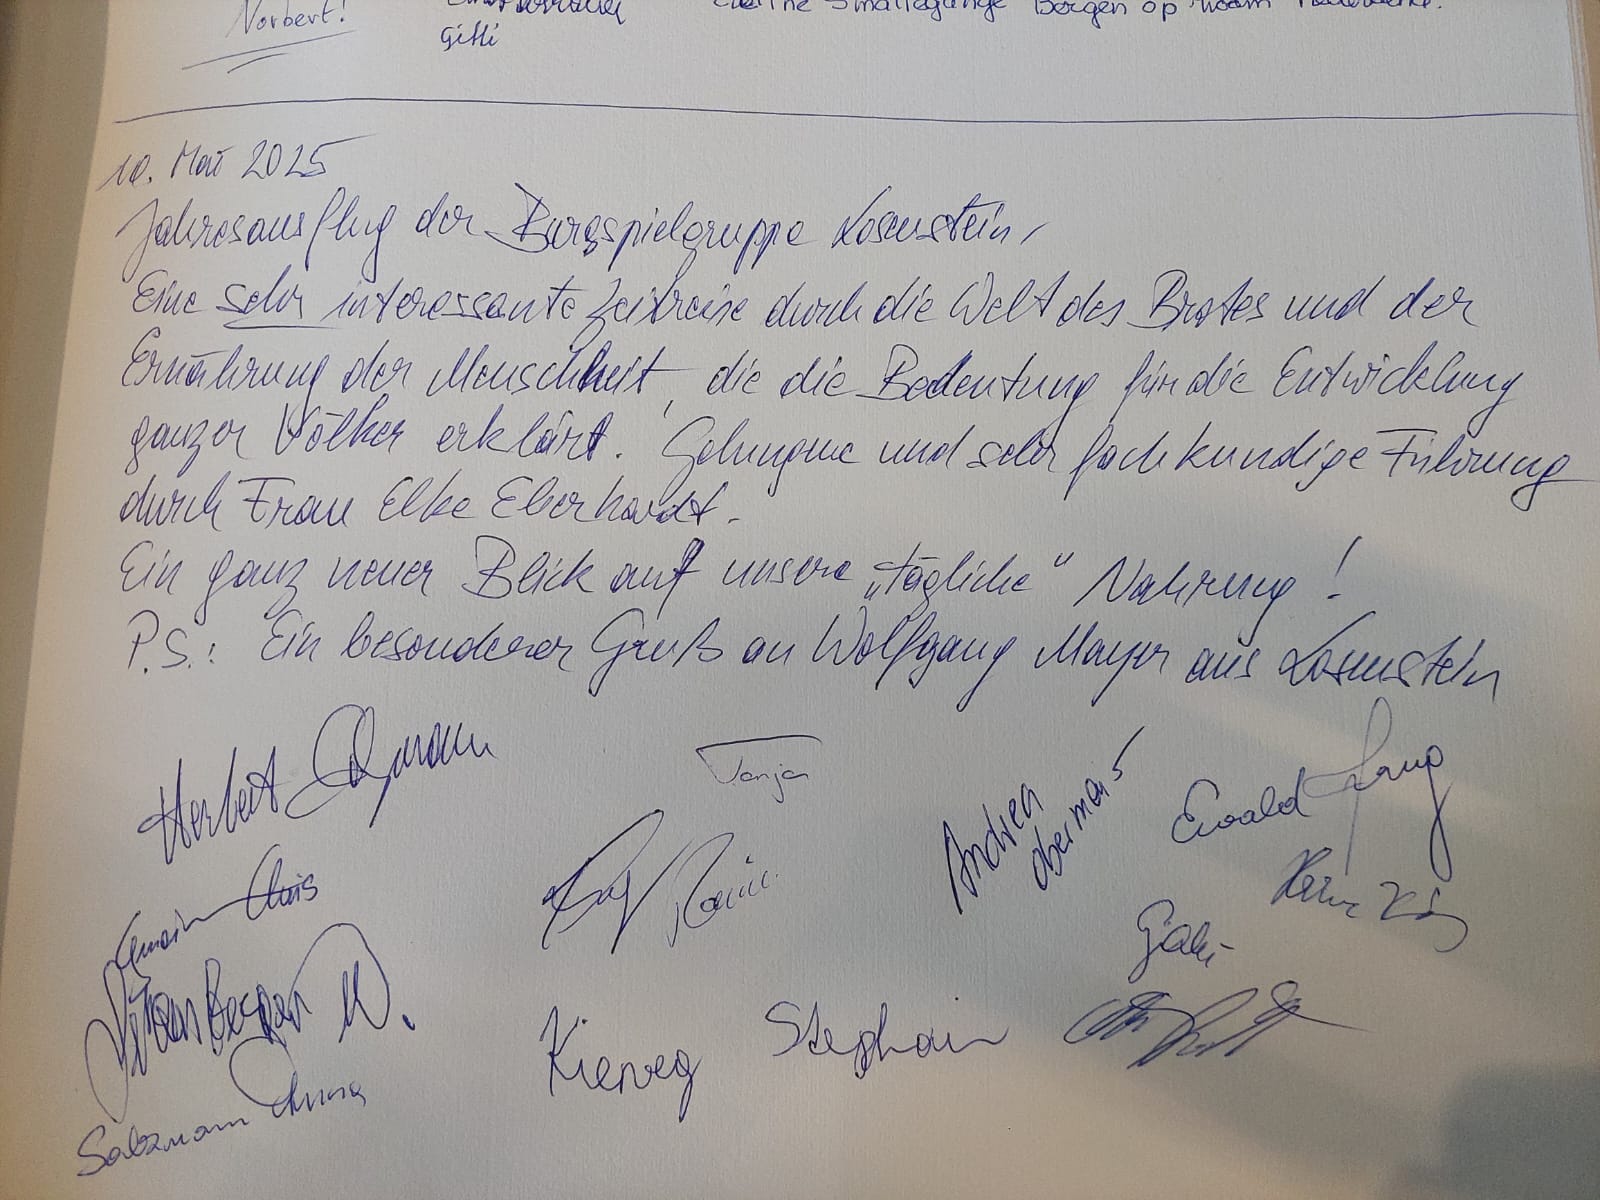 Norbert!
Gitti
Bergen op
10. Mai 2025
Jahresausflug der Burgspielgruppe Losenstein,
Eine sehr interessante Zeitreise durch die Welt des Brotes und der
Ernährung der Menschheit, die die Bedeutung für die Entwicklung
ganzer Völker erklärt. Gelungene und sehr fachkundige Führung
durch Frau Elke Eberhardt.
Ein ganz neuer Blick auf unsere „tägliche“ Nahrung!
P.S.: Ein besonderer Gruß an Wolfgang Mayer aus Losenstein
Herbert
Tanja
Andrea
Ewald
Gabi
Kierweg Stephan
Salzmann